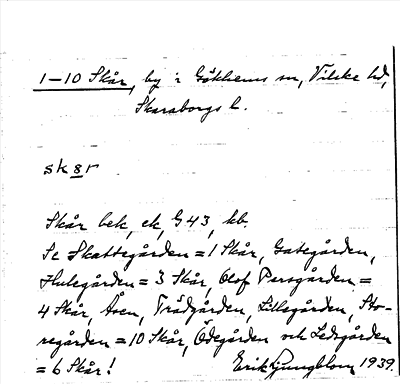 1–10 Skår, by i Gökhems sn, Vilske hd,
Skaraborgs l.
sk8r
Skår bek, ek, G43, kb.
Se Skattegården = 1 Skår, Gategården,
Hulegården = 3 Skår, Olof Persgården =
4 Skår, Åsen, Trädgården, Lillegården, Sto-
regården = 10 Skår, Ödegården och Ledsgården
= 6 Skår! Erik Ljungblom 1939.